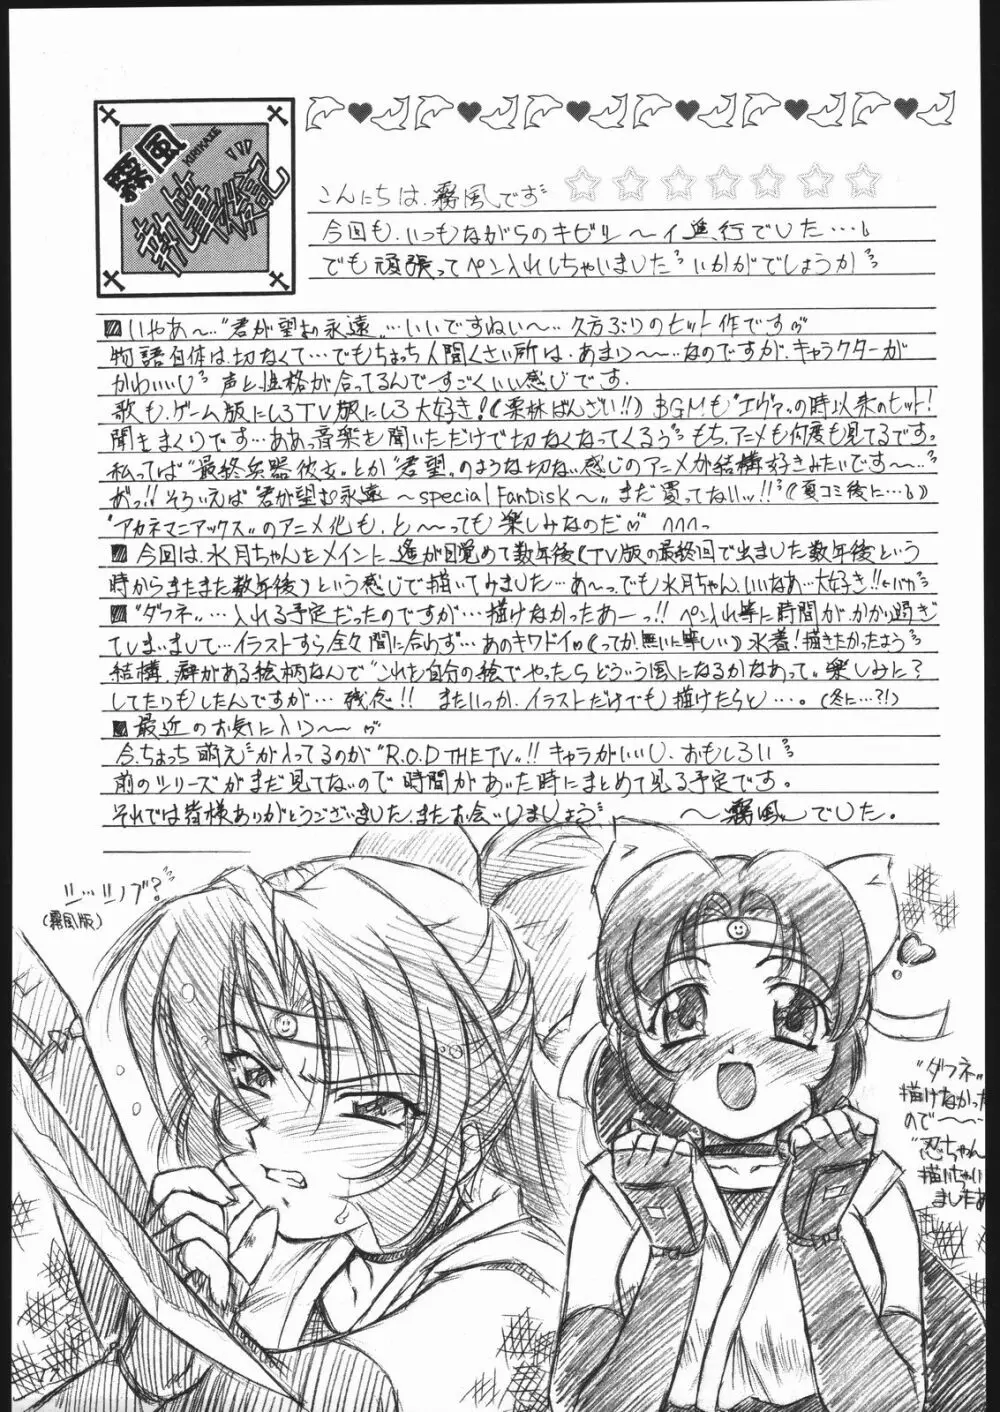 霧風
KIRIKAZE
執筆後記
こんにちは、霧風です
今回も、いつもながらのキビシ〜イ進行でした…
でも頑張ってペン入れしちゃいました いかがでしょうか
いやあ〜…"君が望む永遠"…いいですねい〜…久方ぶりのヒット作です
物語自体は、切なくて…でもちょっち人間くさい所は、あまり〜…なのですが、キャラクターが
かわいいし 声と性格が合ってるんで〜すごくいい感じです。
歌も、ゲーム版にしろTV版にしろ大好き!(栗林ばんざい!!) BGMも"エヴァ"の時以来のヒット!
聞きまくりです…ああ、音楽を聞いただけで切なくなってくるぅ もち、アニメも何度も見てるです。
私ってば"最終兵器彼女"とか"君望"のような切ない感じのアニメが結構好きみたいです〜…
がっ!! そういえば"君が望む永遠 〜special FanDisk〜"まだ買ってないッ!!(夏コミ後に…)
"アカネマニアックス"のアニメ化も、と〜っても楽しみなのだ
今回は、水月ちゃんをメインに、遙が目覚めて数年後(TV版の最終回で出ました数年後という
時からまたまた数年後)という感じで描いてみました…あ〜っでも水月ちゃん、いいなあ…大好き!!←バカ
"ダフネ"…入れる予定だったのですが…描けなかったあーっ!! ペン入れ等に時間が、かかり過ぎ
てしまいまして…イラストすら全く間に合わず…あのキワドイの(ってか、無いに等しい)水着!描きたかったよう
結構、癖がある絵柄なんで"これを自分の絵でやったらどういう風になるかなあって"楽しみに?
してたりもしたんですが…残念!! またいつか、イラストだけでも描けたらと…。(冬に…?!)
最近のお気に入り〜
今、ちょっち"萌え"が入ってるのが"R.O.D THE TV"!! キャラがいいし、おもしろい
前のシリーズがまだ見てないので時間があいた時にまとめて見る予定です。
それでは皆様ありがとうございました、またお会いしましょう 〜霧風〜でした。
シ…シノブ?
(霧風版)
"ダフネ"
描けなかった
ので〜…
"忍ちゃん
描いちゃい
ましたぁ